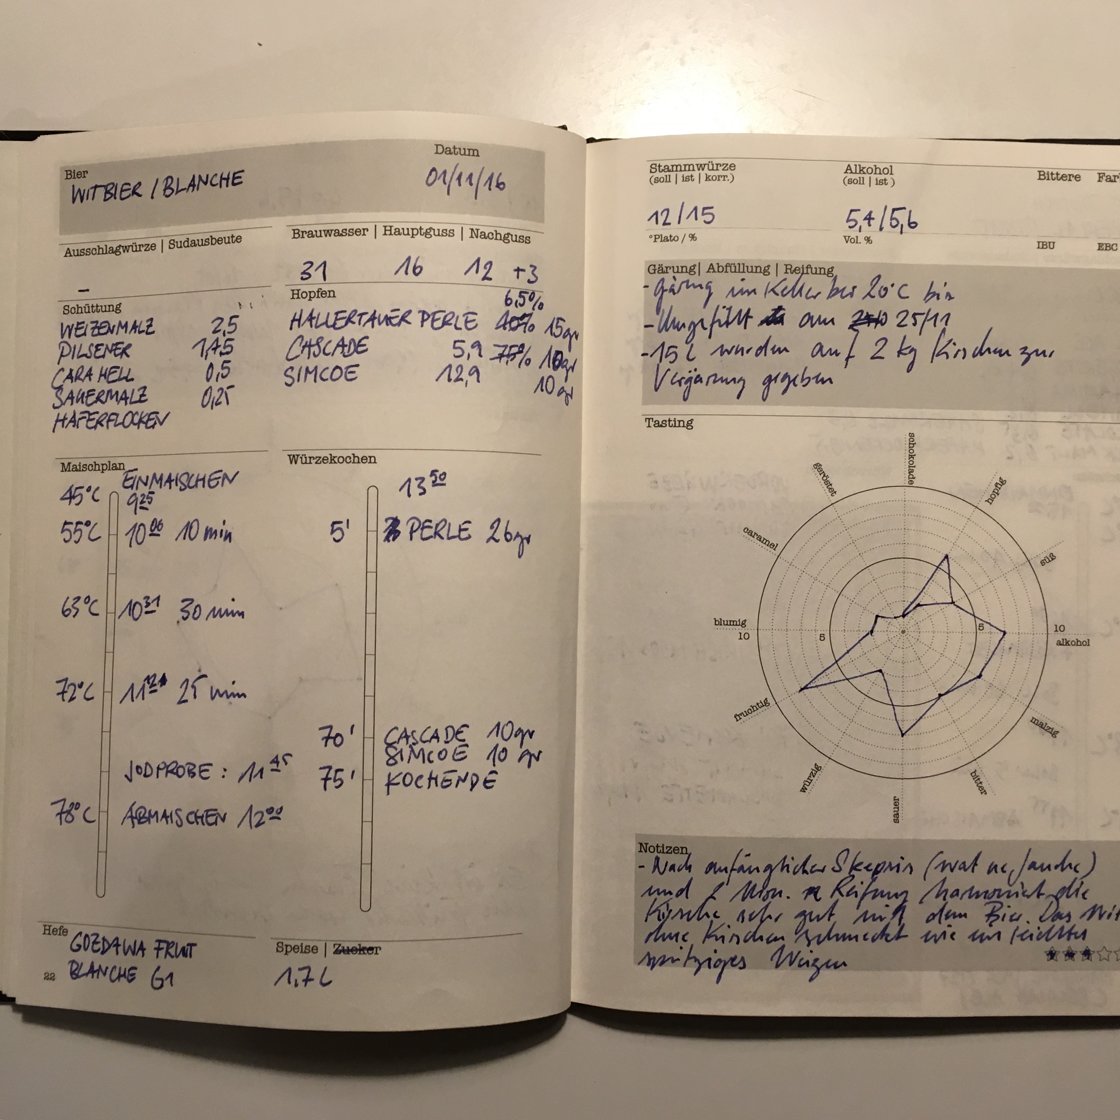 Bier
Datum
WITBIER / BLANCHE
01/11/16
Ausschlagwürze | Sudausbeute
Brauwasser | Hauptguss | Nachguss
–
31 16 12 +3
Schüttung
WEIZENMALZ 2,5
PILSENER 1,45
CARA HELL 0,5
SAUERMALZ 0,25
HAFERFLOCKEN
Hopfen
6,5%
HALLERTAUER PERLE 15gr
CASCADE 5,9 10gr
SIMCOE 12,9 10gr
Maischplan
EINMAISCHEN
45°C 9 25
55°C 10 06 10 min
63°C 10 31 30 min
72°C 11 21 25 min
JODPROBE: 11 45
78°C ABMAISCHEN 12 00
Würzekochen
13 50
5' PERLE 26gr
70' CASCADE 10gr
SIMCOE 10 gr
75' KOCHENDE
Hefe
GOZDAWA FRUIT
BLANCHE G1
Speise | Zucker
1,7 L
22
Stammwürze
(soll | ist | korr.)
12/15
°Plato / %
Alkohol
(soll | ist )
5,4/5,6
Vol. %
Bittere
IBU
Far
EBC
Gärung | Abfüllung | Reifung
- Gärung im Keller bei 20°C bis
- Umgefüllt am 25/11
- 15 L wurden auf 2 kg Kirschen zur
Vergärung gegeben
Tasting
schokolade
hopfig
süß
10
alkohol
5
malzig
bitter
sauer
würzig
fruchtig
blumig
10
5
caramel
geröstet
Notizen
- Nach anfänglicher Skepsis (wat ne/andre)
und 2 Mon. Reifung harmoniert die
Kirsche sehr gut mit dem Bier. Das Wit
ohne Kirschen schmeckt wie ein leichtes
spritziges Weizen